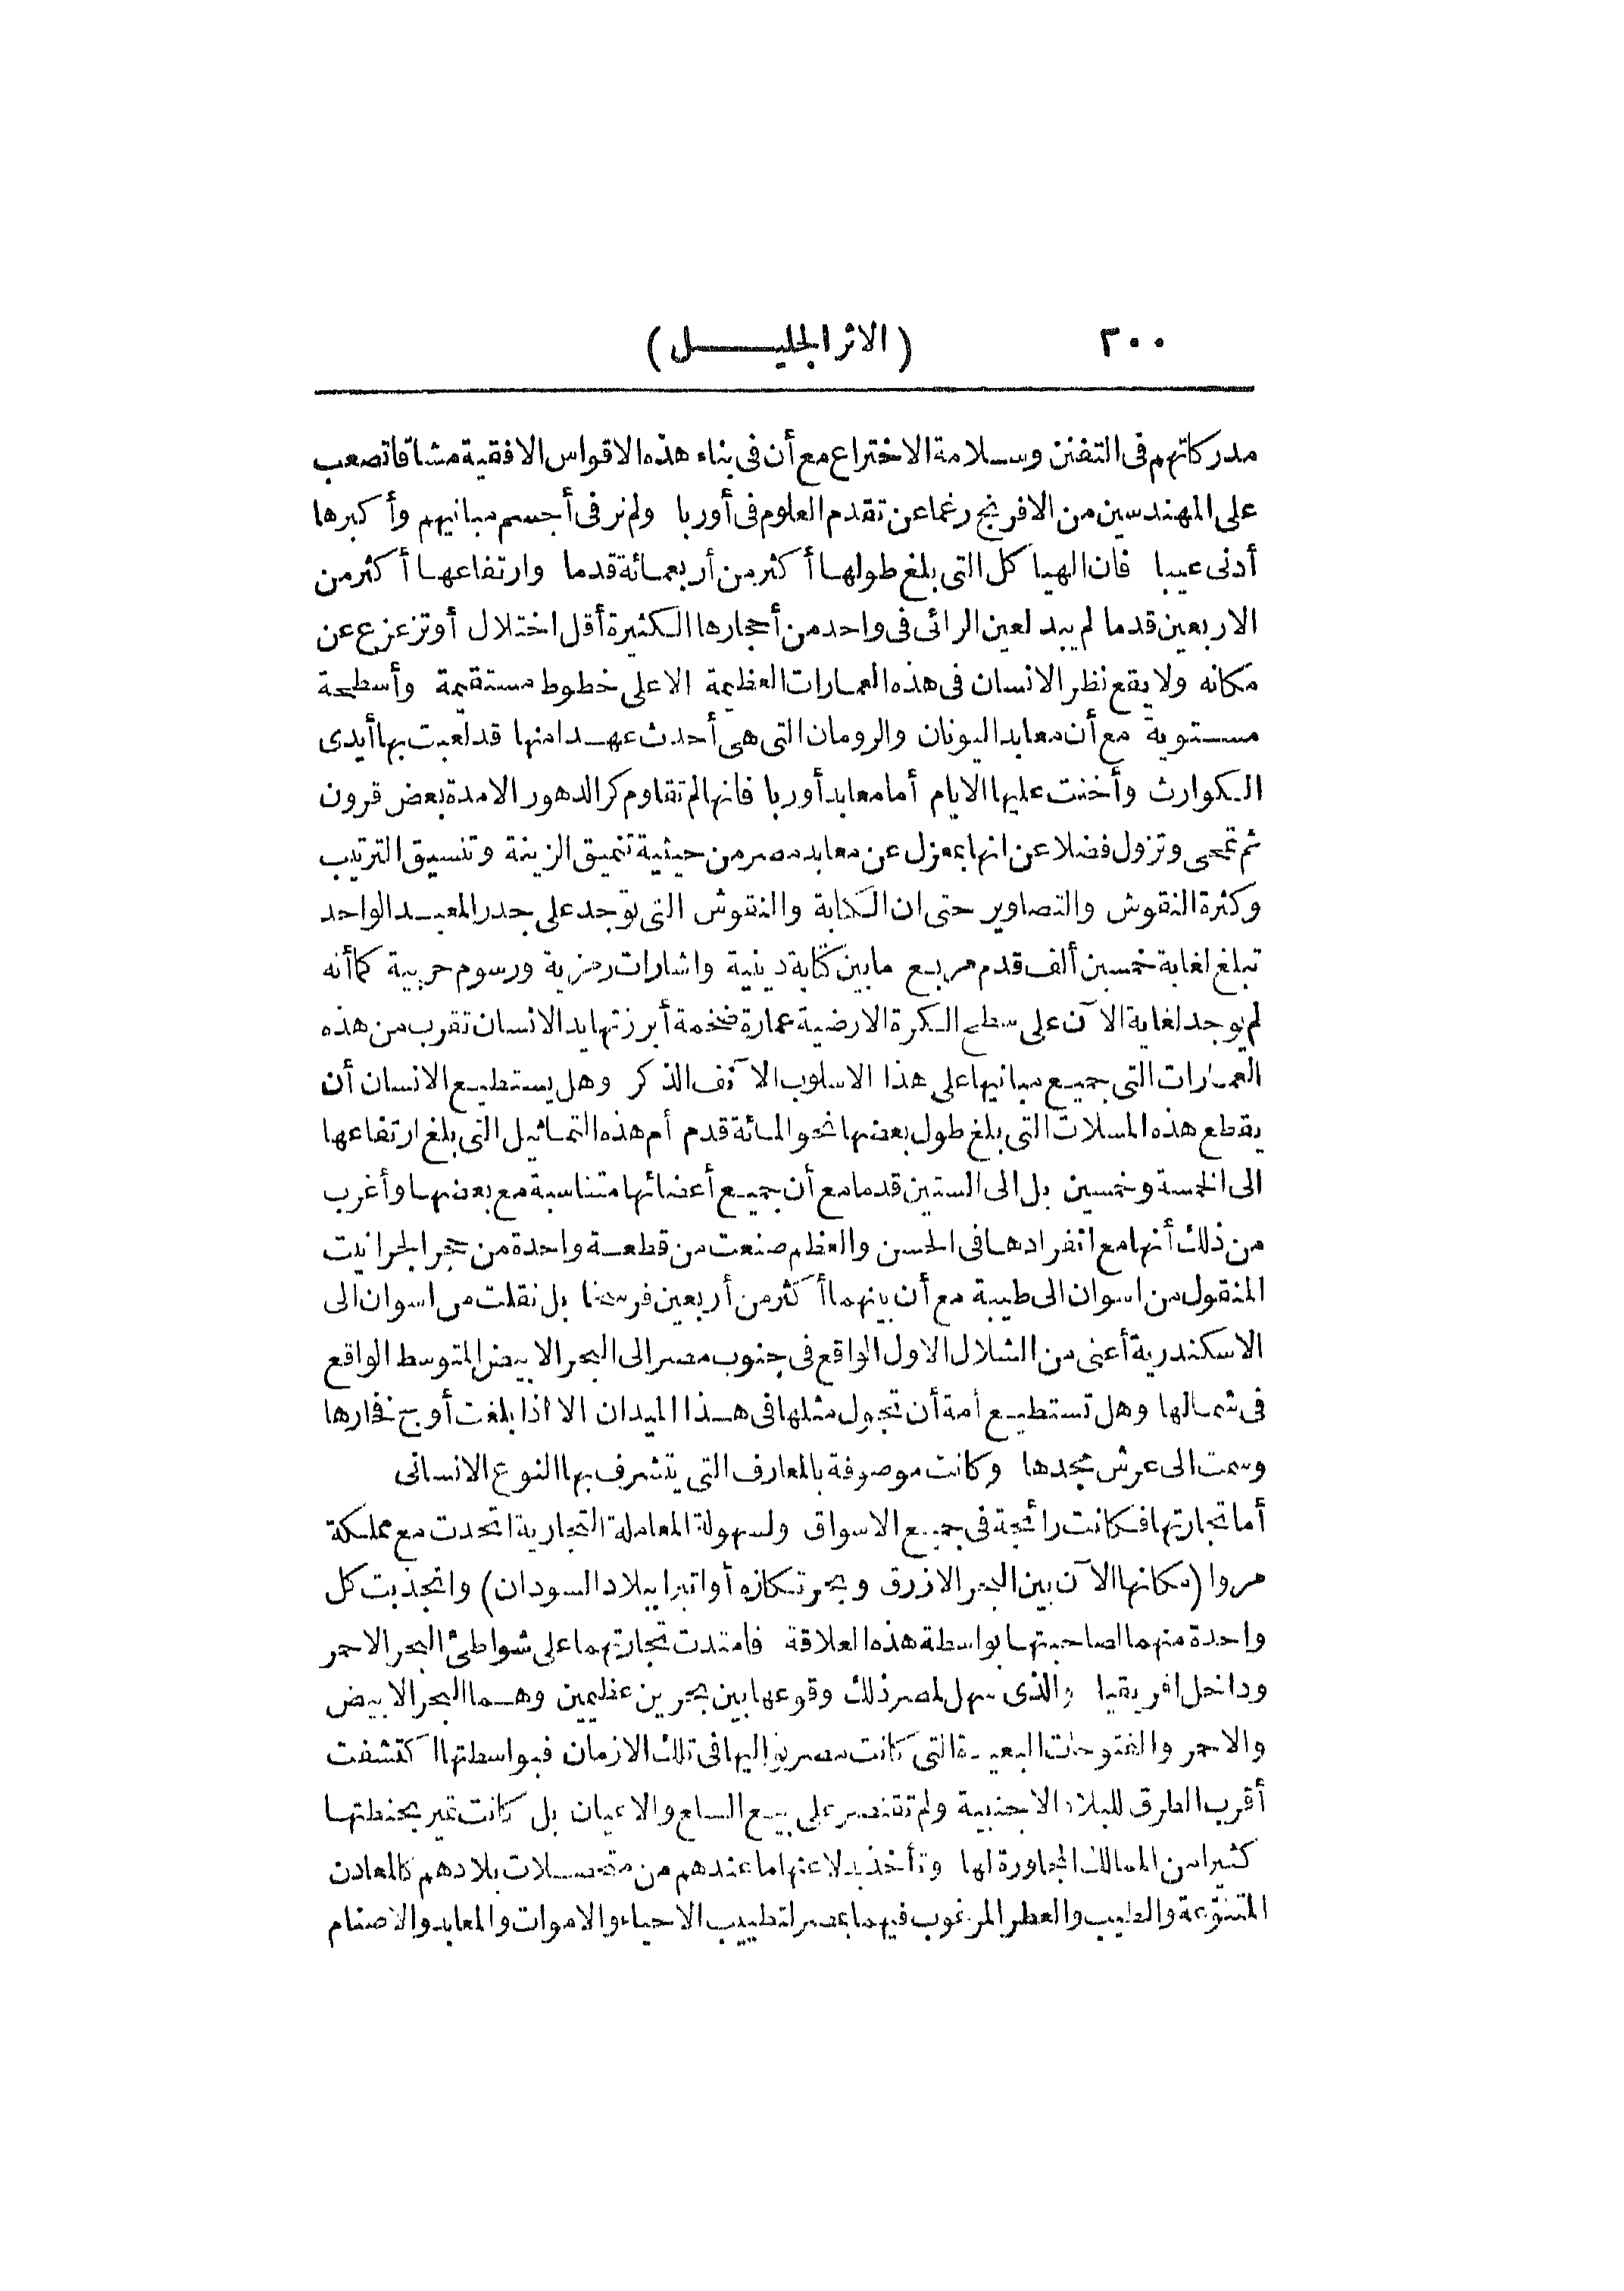 ٢٠٠ (الاثر الجليل)
مدركاتهم فى التفنن وسلامة الاختراع مع أن فى بناء هذه الاقواس الافقية مشاقا تصعب
على المهندسين من الافرنج رغما عن تقدم العلوم فى أوربا ولم نر فى أجسم مبانيهم وأكبرها
أدنى عيبا فان الهياكل التى بلغ طولها أكثر من أربعمائة قدما وارتفاعها أكثر من
الاربعين قدما لم يبد لعين الرائى فى واحد من أحجارها الكثيرة أقل اختلال أو تزعزع عن
مكانه ولا يقع نظر الانسان فى هذه العمارات العظيمة الا على خطوط مستقيمة وأسطحة
مستوية مع أن معابد اليونان والرومان التى هى أحدث عهدا منها قد لعبت بها أيدى
الكوارث وأخنت عليها الايام أما معابد أوربا فانها لم تقاوم كر الدهور الا مدة بعض قرون
ثم تمحى وتزول فضلا عن انها بمعزل عن معابد مصر من حيثية تنميق الزينة وتنسيق الترتيب
وكثرة النقوش والتصاوير حتى ان الكتابة والنقوش التى توجد على جدر المعبد الواحد
تبلغ لغاية خمسين ألف قدم مربع ما بين كتابة دينية واشارات رمزية ورسوم حربية كما أنه
لم يوجد لغاية الآن على سطح الكرة الارضية عمارة ضخمة أبرزتها يد الانسان تقرب من هذه
العمارات التى جميع مبانيها على هذا الاسلوب الآنف الذكر وهل يستطيع الانسان أن
يقطع هذه المسلات التى بلغ طول بعضها نحو المائة قدم أم هذه التماثيل التى بلغ ارتفاعها
الى الخمسة وخمسين بل الى الستين قدما مع أن جميع أعضائها متناسبة مع بعضها وأغرب
من ذلك أنها مع انفرادها فى الحسن والعظم صنعت من قطعة واحدة من حجر الجرانيت
المنقول من اسوان الى طيبة مع أن بينهما أكثر من أربعين فرسخا بل نقلت من اسوان الى
الاسكندرية أعنى من الشلال الاول الواقع فى جنوب مصر الى البحر الابيض المتوسط الواقع
فى شمالها وهل تستطيع أمة أن تجول مثلها فى هذا الميدان الا اذا بلغت أوج فخارها
وسمت الى عرش مجدها وكانت موصوفة بالمعارف التى يتشرف بها النوع الانسانى
أما تجارتها فكانت رائجة فى جميع الاسواق ولسهولة المعاملة التجارية اتحدت مع مملكة
مروا (مكانها الآن بين البحر الازرق وبحر تكازه أو اتبرا ببلاد السودان) وانجذبت كل
واحدة منهما لصاحبتها بواسطة هذه العلاقة فامتدت تجارتهما على شواطئ البحر الاحمر
وداخل افريقيا والذى سهل لمصر ذلك وقوعها بين بحرين عظيمين وهما البحر الابيض
والاحمر والفتوحات البعيدة التى كانت مصر اليها فى تلك الازمان فبواسطتها اكتشفت
أقرب الطرق للبلاد الاجنبية ولم تقتصر على بيع السلع والاعيان بل كانت تمير بحنطتها
كثيرا من الممالك المجاورة لها وتأخذ بدلا عنها ما عندهم من متحصلات بلادهم كالمعادن
المتنوّعة والطيب والعطر المرغوب فيهما بمصر لتطييب الاحياء والاموات والمعابد والاصنام